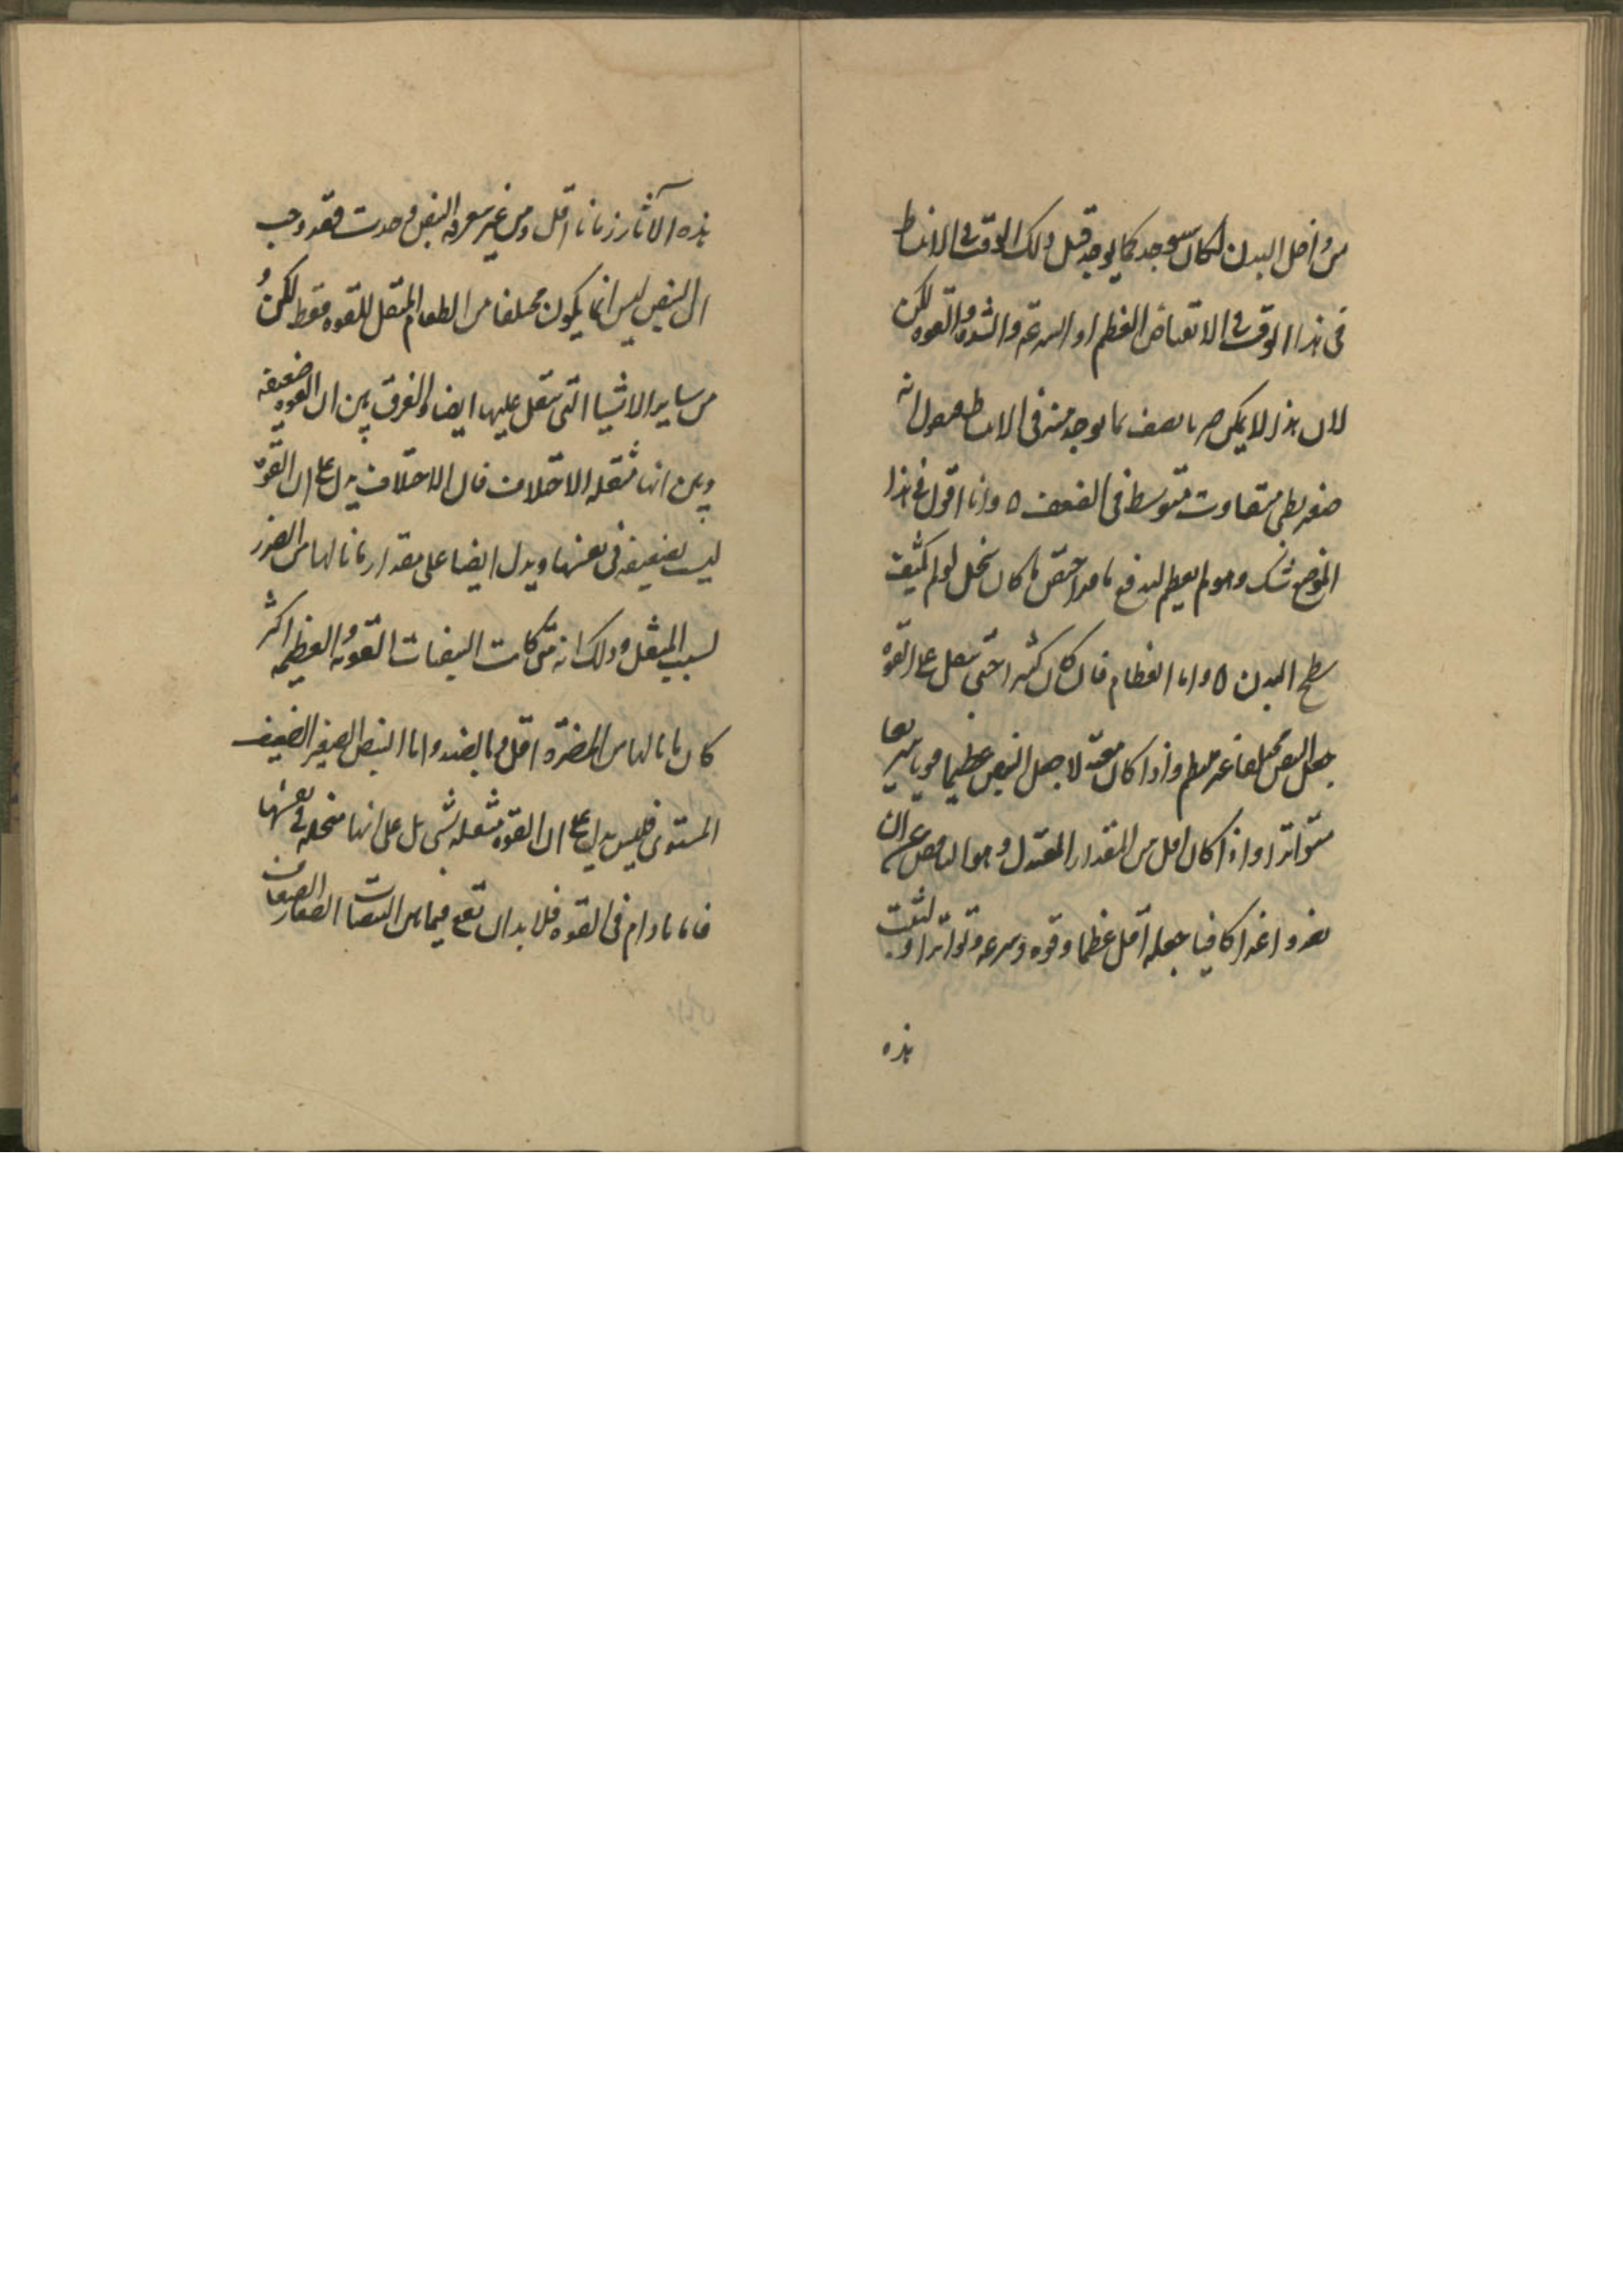 من داخل البدن لكان سيوجد كما يوجد قبل ذلك الوقت فى الانبساط
فى هذا الوقت فى الانقباض العظم او السرعة والشدة والقوه لكن
لان هذا لا يمكن صرنا نصف ما يوجد منه فى الانبساط فنقول انه
صغير بطى متفاوت متوسط فى الضعف ٥ وانا اقول فى هذا
الموضع شك وهو لم يعظم ليدفع ما قد احتقن ما كان يتحلل لو لم يكثف
سطح البدن ٥ واما الطعام فان كان كثيرا حتى يثقل على القوة
جعل النبض مختلفا غير منتظم واذا كان معتدلا جعل النبض عظيما قويا سريعا
متواترا واذا كان اقل من المقدار المعتدل وهو الناقص عن ان
يغذو اغذا كافيا جعله اقل عظما وقوه وسرعة وتواترا و لبثت
هذه
هذه الآثار زمانا اقل ومن غير معرفه النبض وحدت فقد وجب
ان النبض ليس انما يكون مختلفا من الطعام المثقل للقوه فقط لكن و
من ساير الاشيا التى تثقل عليها ايضا والفرق بين ان القوه ضعيفه
وبين انها مثقله الاختلاف فان الاختلاف يدل على ان القوة
ليست بضعيفه فى نفسها ويدل ايضا على مقدار ما نالها من الضرر
بسبب المثقل وذلك انه متى كانت النبضات القويه العظيمه اكثر
كان ما نالها من المضرة اقل وبالضد واما النبض الصغير الضعيف
المستوى فليس يدل على ان القوه مثقله بشى بل على انها منحله فى نفسها
فاما ما دام فى القوه فلا بد ان تقع فيما بين النبضات الصغار الضعاف